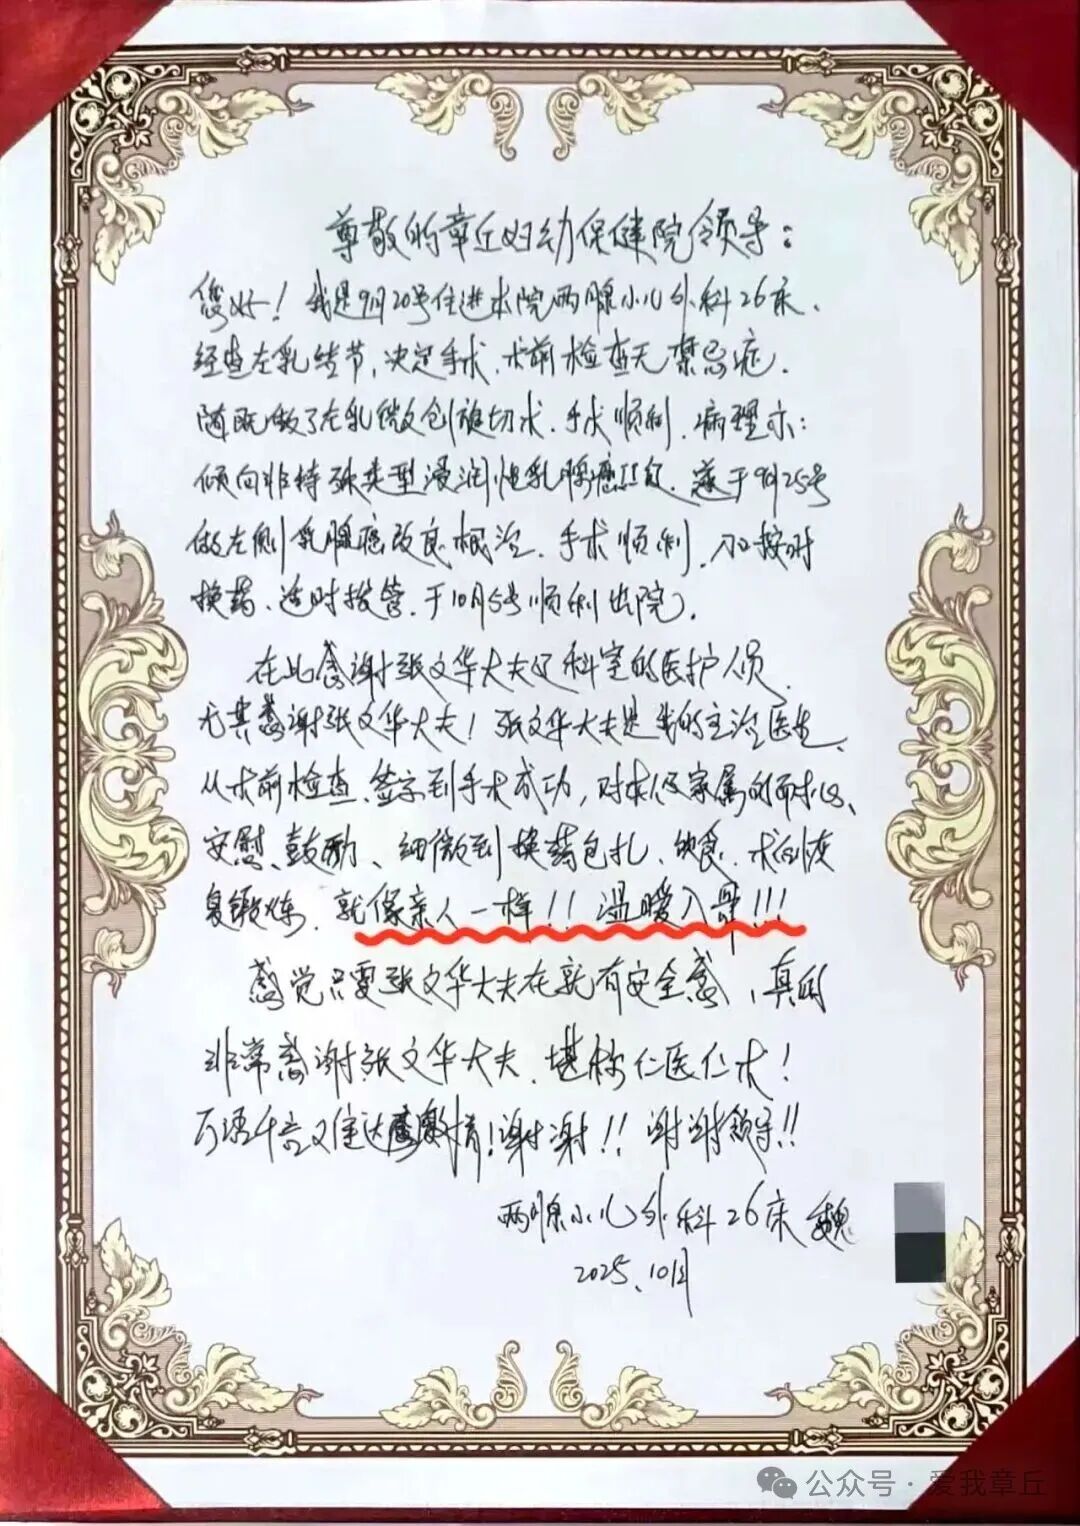 尊敬的章丘妇幼保健院领导：
您好！我是9月20号住进本院两腺小儿外科26床．
经查左乳结节，决定手术．术前检查无禁忌症．
随既做了左乳微创旋切术．手术顺利．病理示：
倾向非特殊类型浸润性乳腺癌．遂于9月25号
做左侧乳腺癌改良根治．手术顺利．按时
换药、适时拔管．于10月5号顺利出院．
在此感谢张文华大夫及科室的医护人员．
尤其感谢张文华大夫！张文华大夫是我的主治医生、
从术前检查、签字到手术成功，对本人及家属的耐心、
安慰、鼓励、细微到换药包扎、饮食、术后恢
复锻炼．就像亲人一样！！温暖入骨！！！
感觉只要张文华大夫在就有安全感，真的
非常感谢张文华大夫．堪称仁医仁术！
万语千言难达感激情！谢谢！！谢谢领导！！
两腺小儿外科26床 魏
2025.10月
公众号·爱我章丘